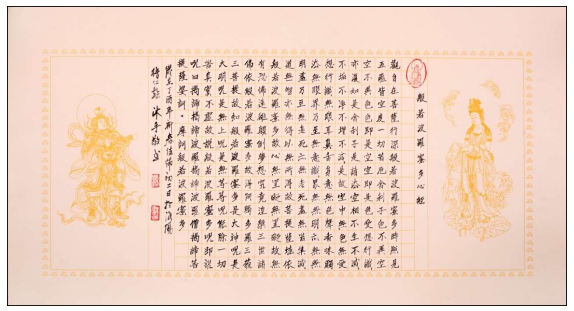 般若波羅蜜多心經
觀自在菩薩行深般若波羅蜜多時照見
五蘊皆空度一切苦厄舍利子色不異空
空不異色色即是空空即是色受想行識
亦復如是舍利子是諸法空相不生不滅
不垢不淨不增不減是故空中無色無受
想行識無眼耳鼻舌身意無色聲香味觸
法無眼界乃至無意識界無無明亦無無
明盡乃至無老死亦無老死盡無苦集滅
道無智亦無得以無所得故菩提薩埵依
般若波羅蜜多故心無罣礙無罣礙故無
有恐怖遠離顛倒夢想究竟涅槃三世諸
佛依般若波羅蜜多故得阿耨多羅三藐
三菩提故知般若波羅蜜多是大神咒是
大明咒是無上咒是無等等咒能除一切
苦真實不虛故說般若波羅蜜多咒即說
咒曰揭諦揭諦波羅揭諦波羅僧揭諦菩
提薩婆訶摩訶般若波羅蜜多
丁酉年新春佳節初二日於